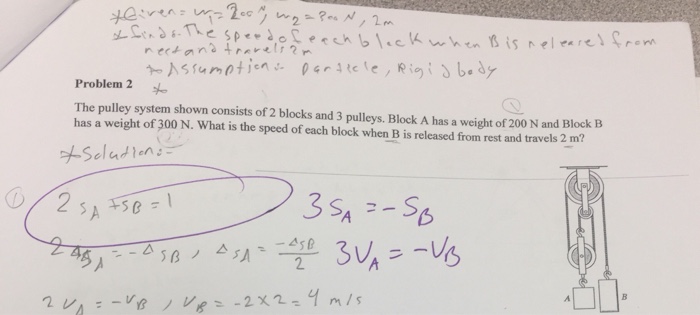 *Given:- w1=200N, w2=300N, 2m
* Find:- The speed of each block when B is released from
rest and travels 2m
* Assumption:- Particle, Rigid body
Problem 2
*
The pulley system shown consists of 2 blocks and 3 pulleys. Block A has a weight of 200 N and Block B
has a weight of 300 N. What is the speed of each block when B is released from rest and travels 2 m?
*Solution:-
① 2 SA + SB = l 3 SA = - SB
2 ΔSA = - ΔSB , ΔSA = -ΔSB/2 3VA = -VB
2 VA = -VB , VB = -2×2 = 4 m/s
A B